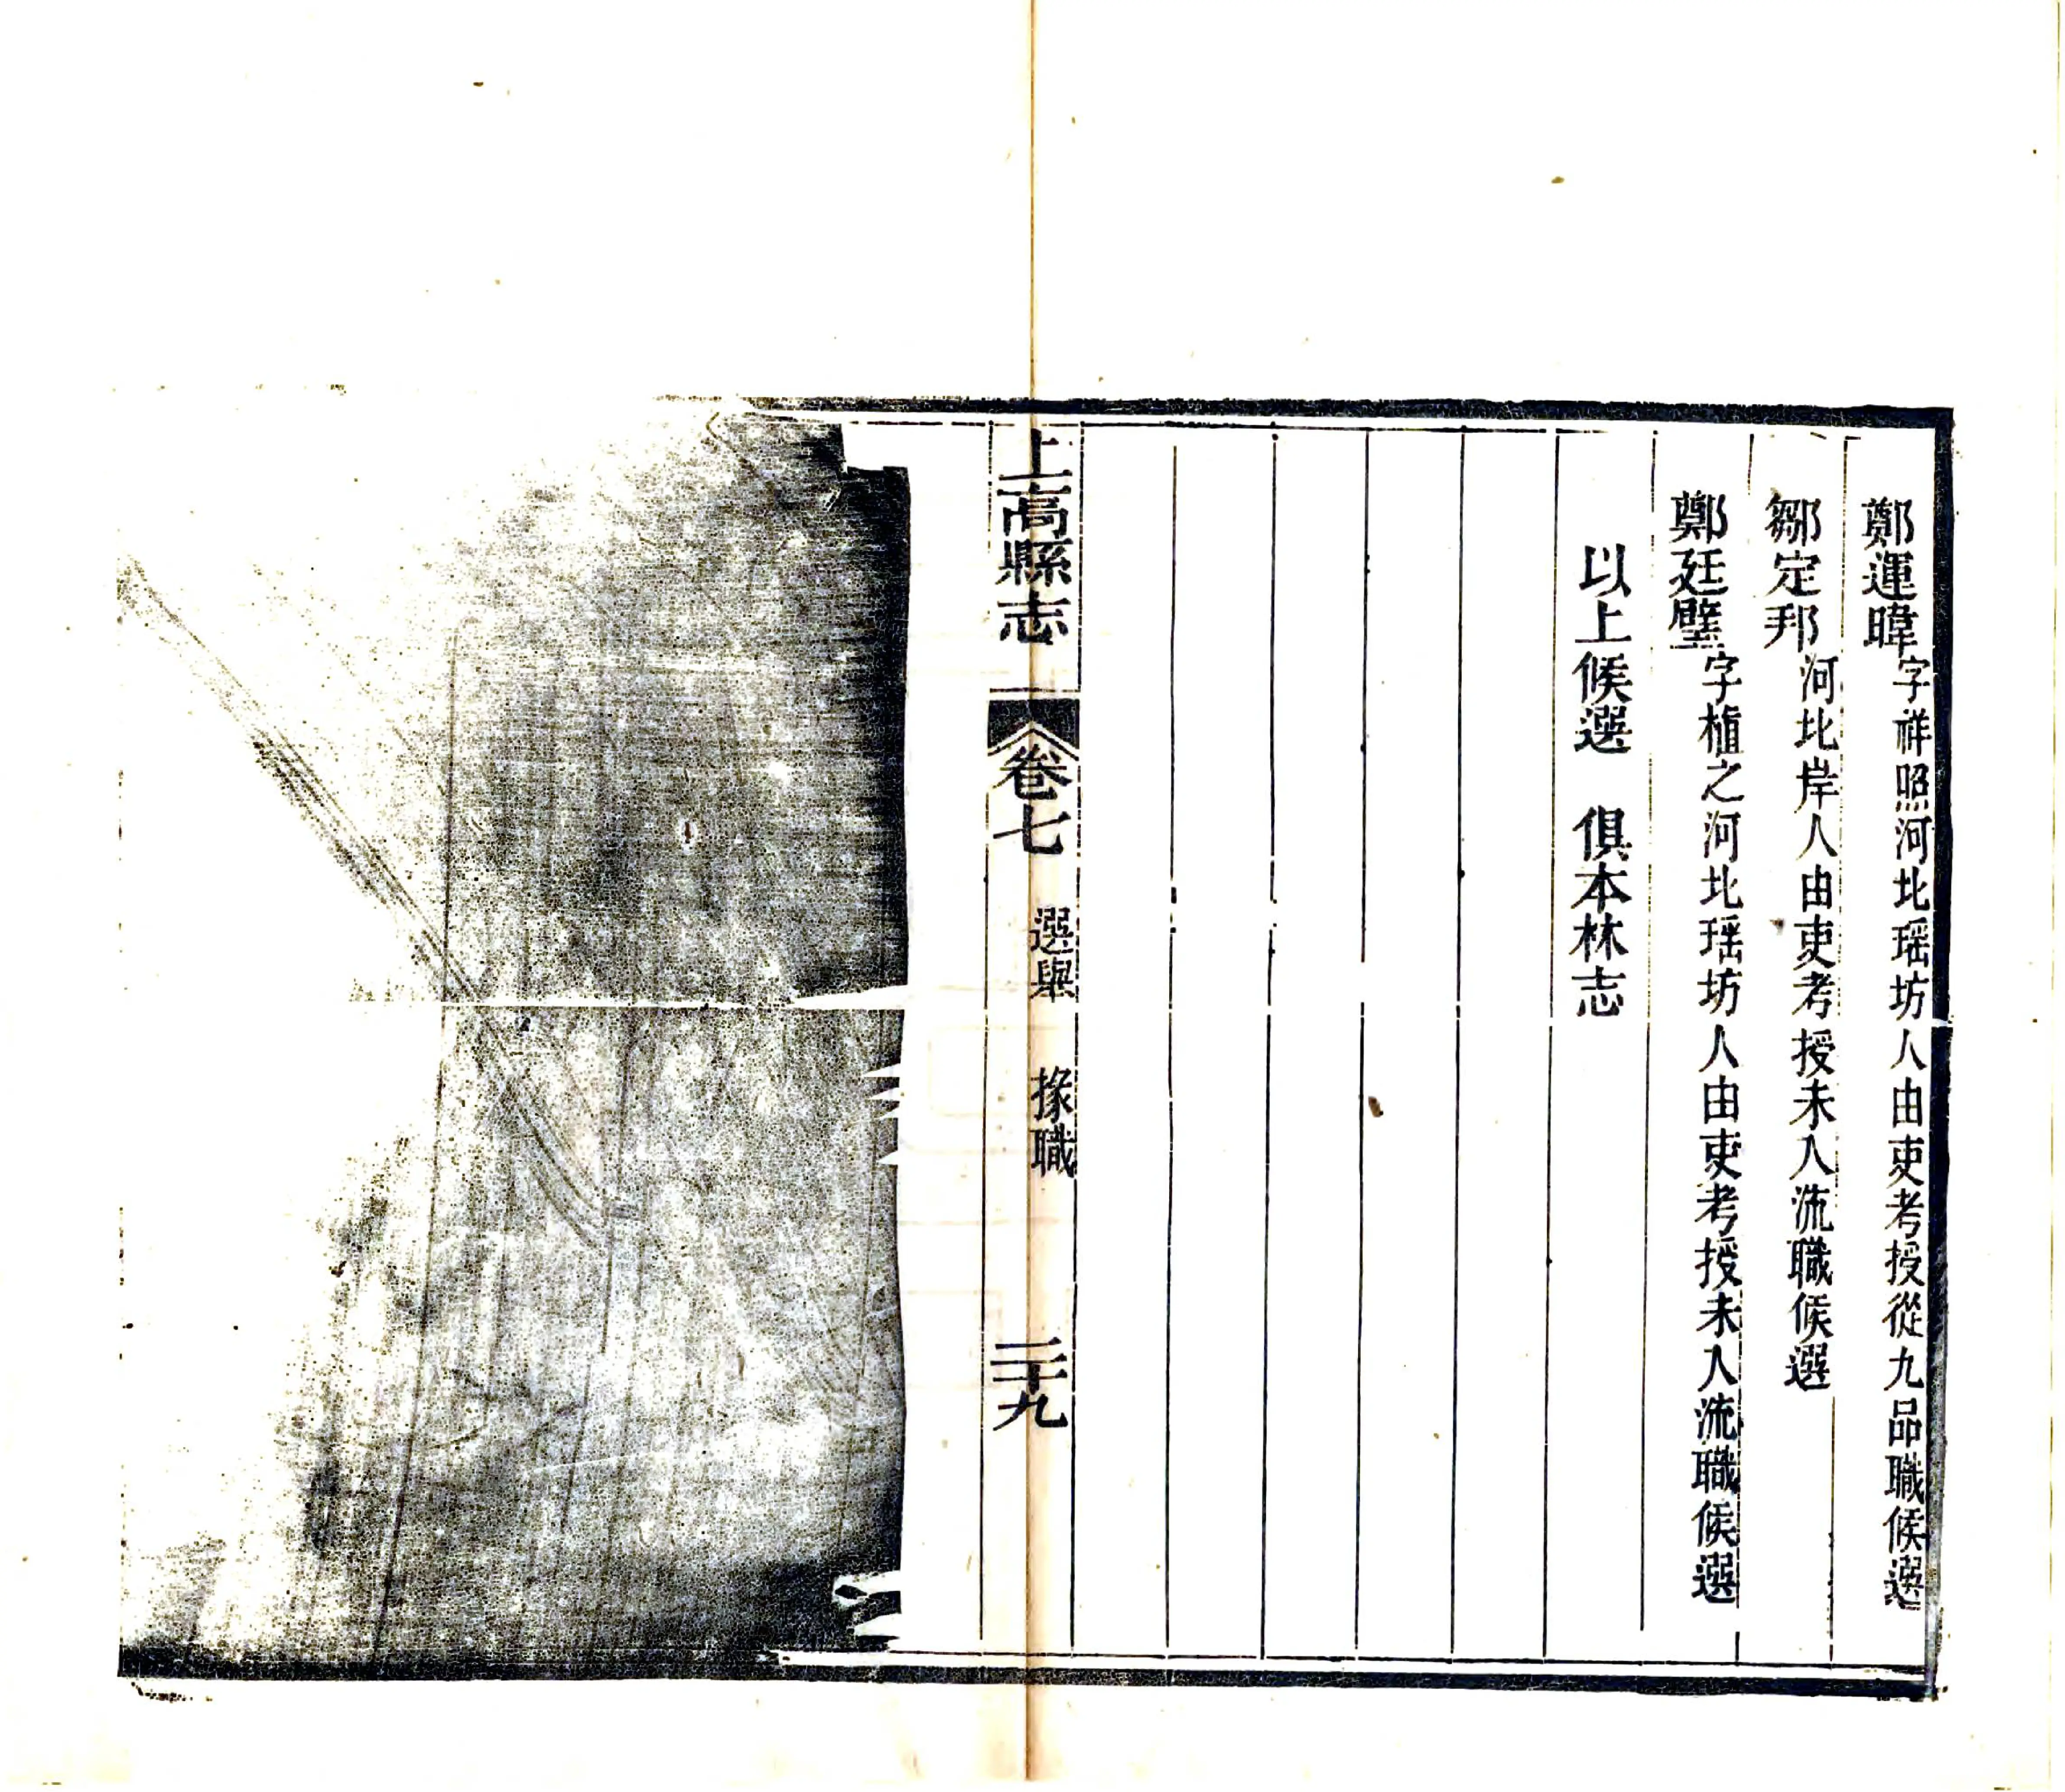 鄭運暐字祥照河北瑶坊人由吏考授從九品職候選
鄒定邦河北岸人由吏考授未入流職候選
鄭廷璧字植之河北瑶坊人由吏考授未入流職候選
以上候選　俱本林志
上高縣志　卷七　選舉　掾職　二十九